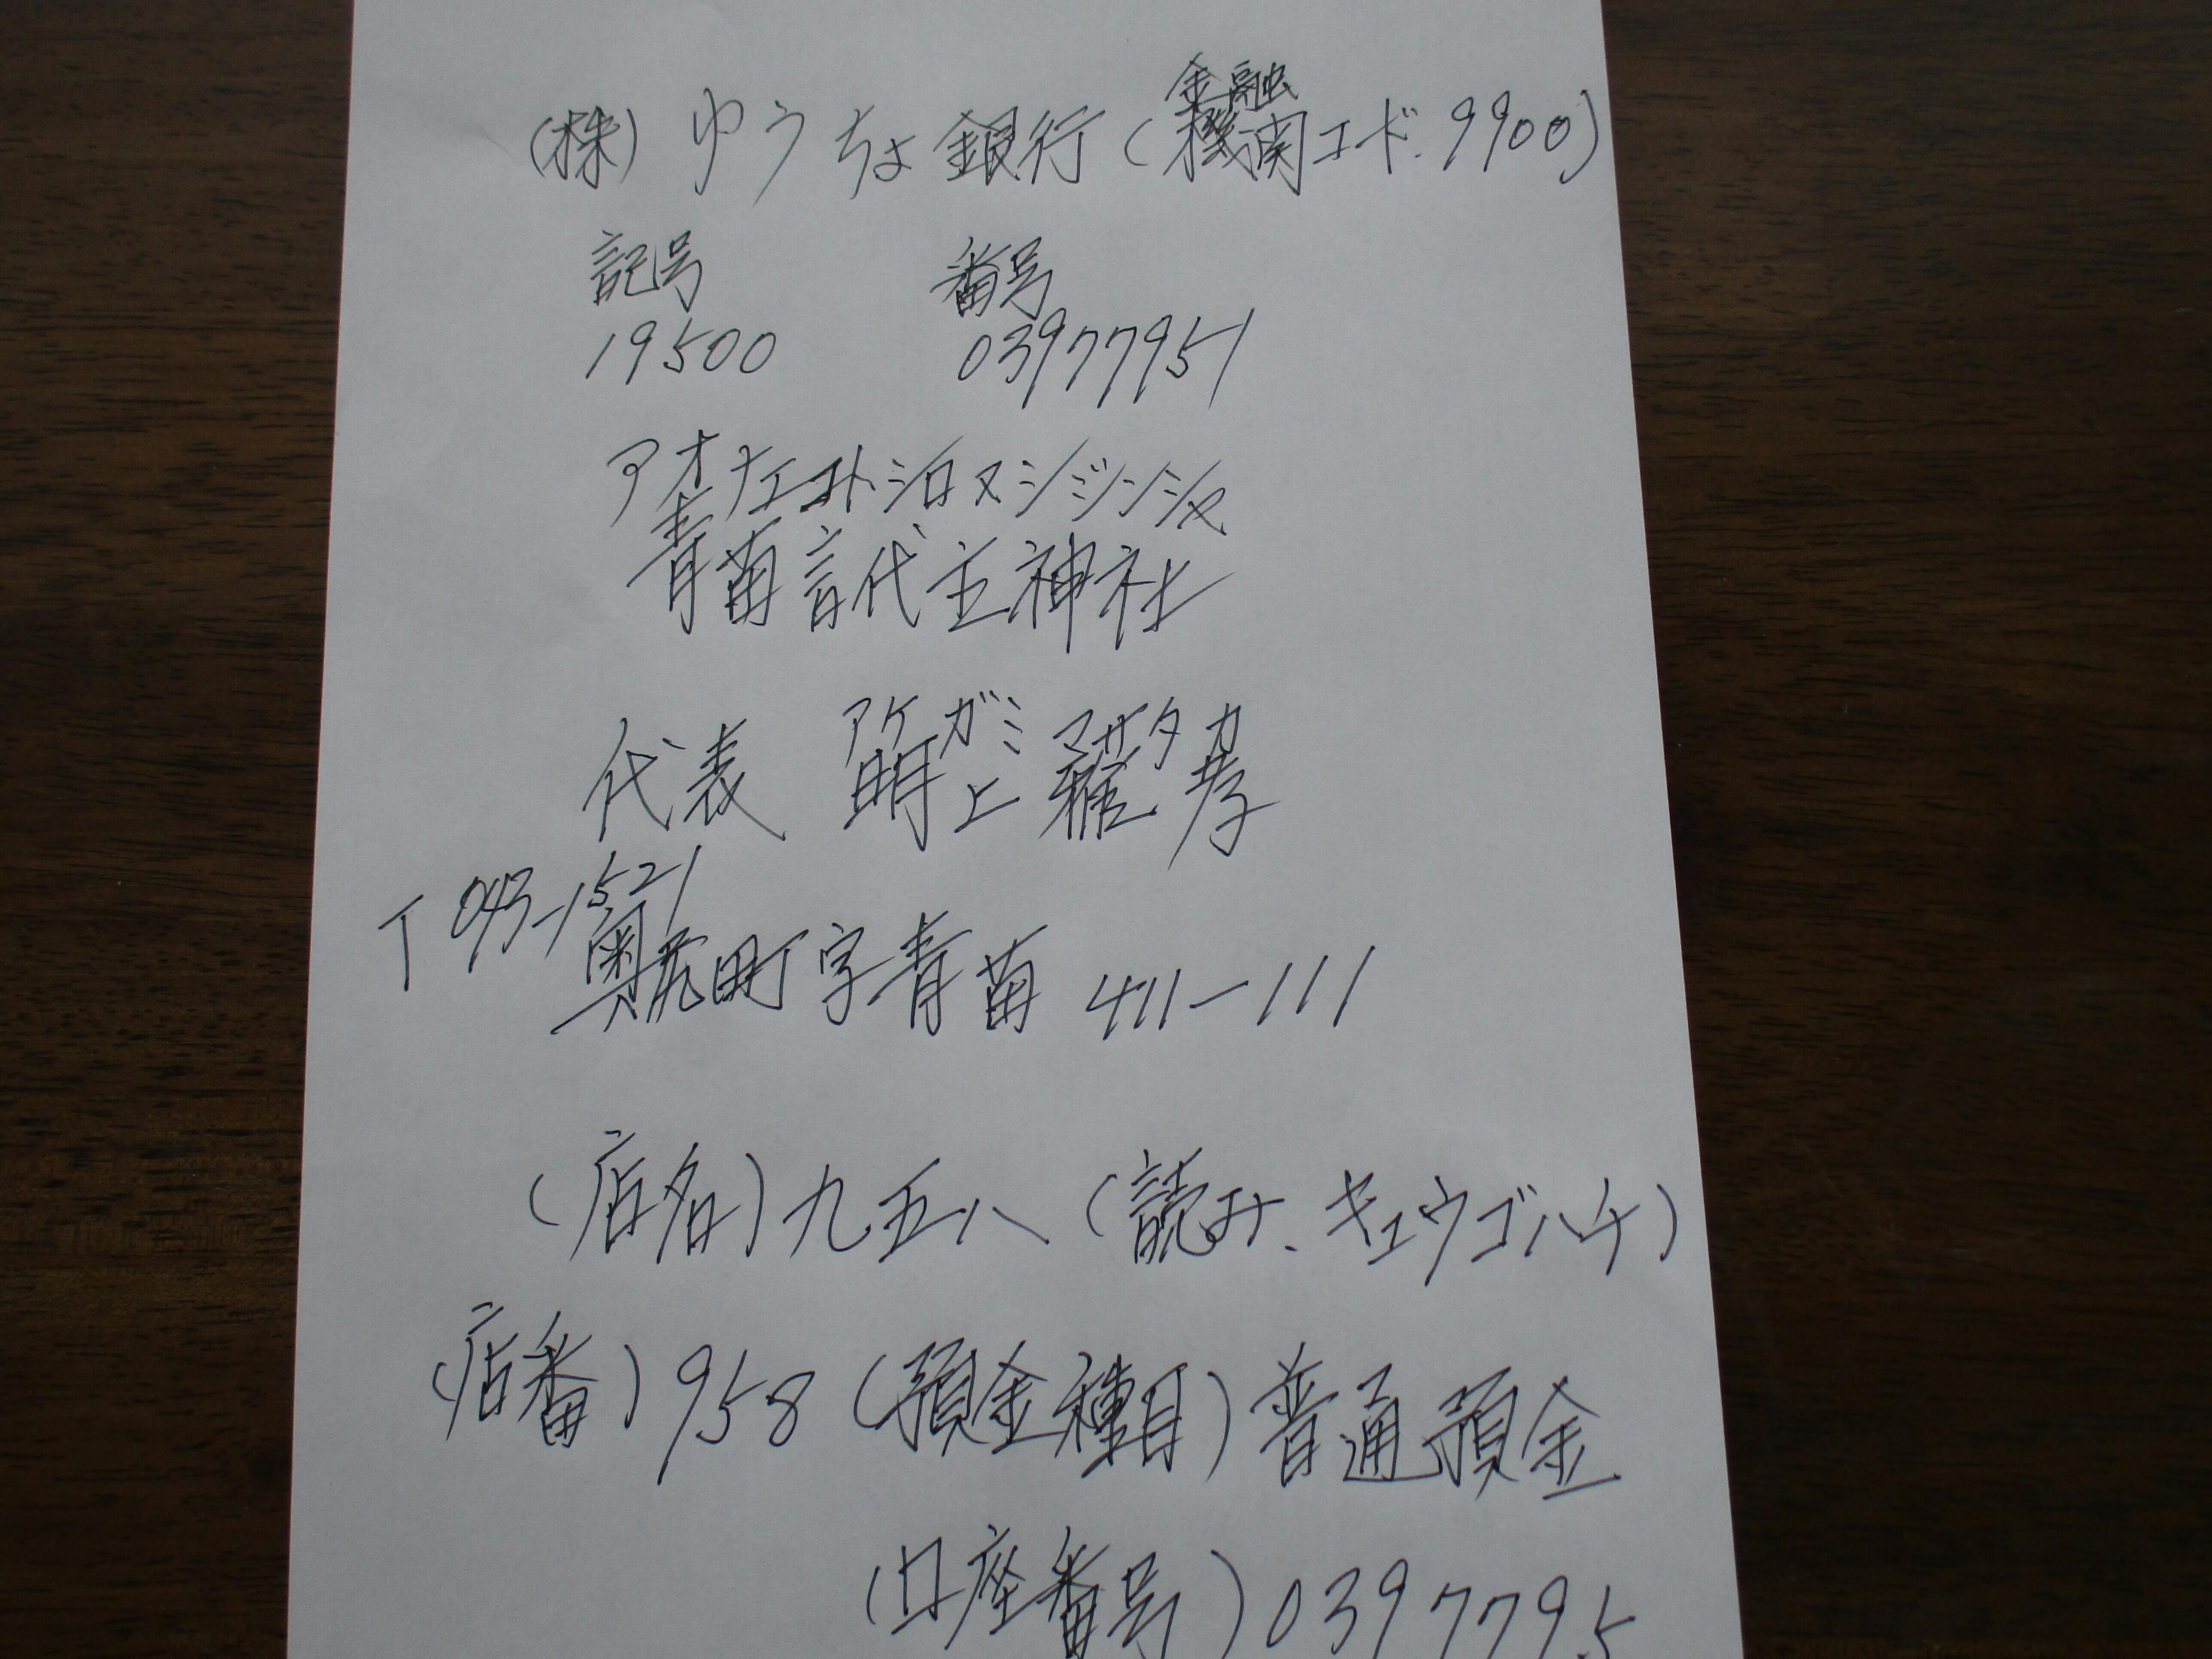 金融
(株)ゆうちょ銀行(機関コード.9900)
記号 番号
19500 03977951
アオナエコトシロヌシジンシャ
青苗言代主神社
アケガミ マサタカ
代表 明上雅孝
〒043-1521
奥尻町字青苗411-111
(店名)九五八(読み、キュウゴハチ)
(店番)958(預金種目)普通預金
(口座番号)0397795